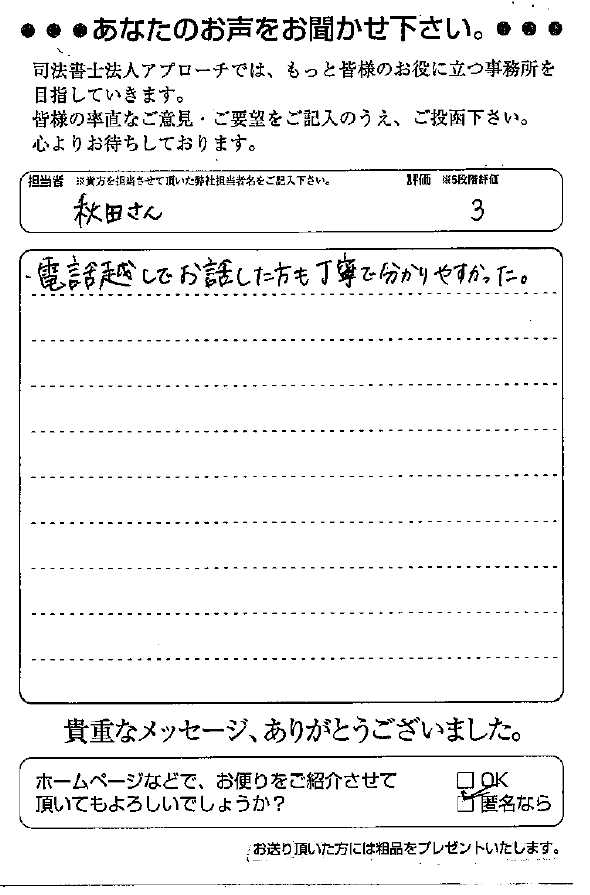 ●●●あなたのお声をお聞かせ下さい。●●●
司法書士法人アプローチでは、もっと皆様のお役に立つ事務所を
目指していきます。
皆様の率直なご意見・ご要望をご記入のうえ、ご投函下さい。
心よりお待ちしております。
担当者 ※貴方を担当させて頂いた弊社担当者名をご記入下さい。 評価 ※5段階評価
秋田さん 3
・電話越しでお話した方も丁寧で分かりやすかった。
貴重なメッセージ、ありがとうございました。
ホームページなどで、お便りをご紹介させて □ OK
頂いてもよろしいでしょうか？ ☑ 匿名なら
お送り頂いた方には粗品をプレゼントいたします。